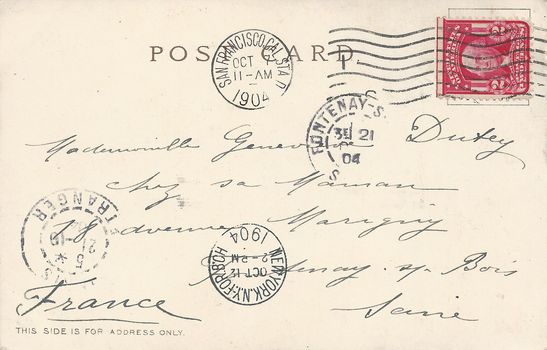 POST CARD.
SAN FRANCISCO, CAL. STA. D.
OCT
11-AM
1904
FONTENAY-S
3E 21
04
Mademoiselle Geneviève Dutey
chez sa Maman
18 avenue Marigny
Fontenay s/ Bois
Seine
France
ETRANGER
NEW YORK, N.Y. FOR. BCH.
OCT 12
2-PM
1904
THIS SIDE IS FOR ADDRESS ONLY.